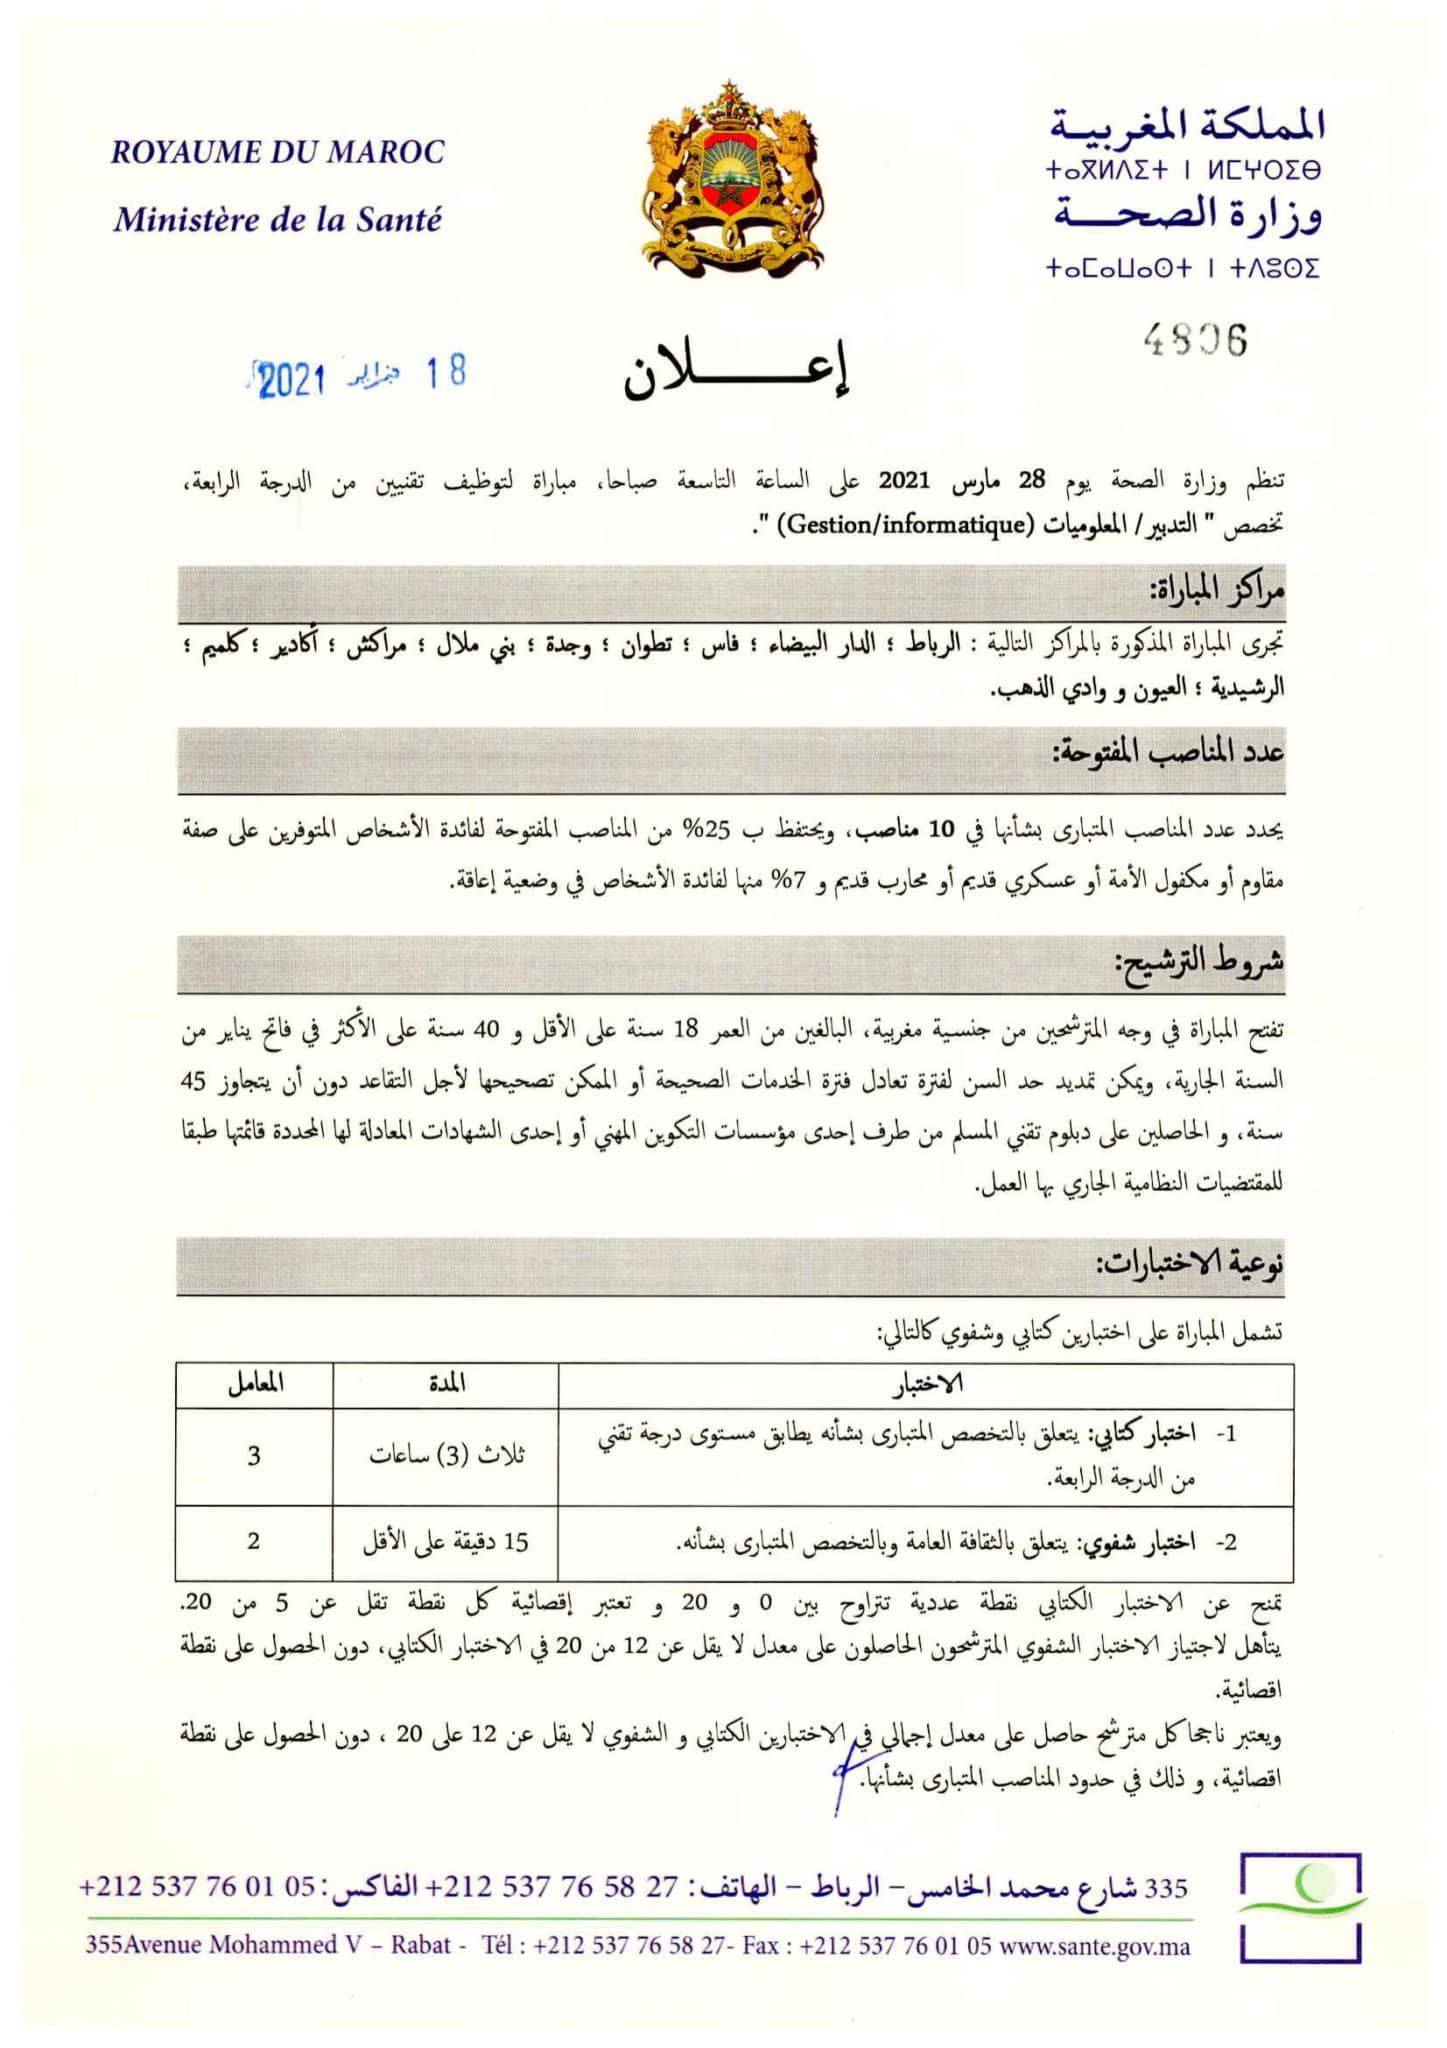 ROYAUME DU MAROC
Ministère de la Santé
المملكة المغربية
ⵜⴰⴳⵍⴷⵉⵜ ⵏ ⵍⵎⵖⵔⵉⴱ
وزارة الصحة
ⵜⴰⵎⴰⵡⴰⵙⵜ ⵏ ⵜⴷⵓⵙⵉ
4806
18 فبراير 2021
إعـــــلان
تنظم وزارة الصحة يوم 28 مارس 2021 على الساعة التاسعة صباحا، مباراة لتوظيف تقنيين من الدرجة الرابعة،
تخصص " التدبير/ المعلوميات (Gestion/informatique) ".
مراكز المباراة:
تجرى المباراة المذكورة بالمراكز التالية : الرباط ؛ الدار البيضاء ؛ فاس ؛ تطوان ؛ وجدة ؛ بني ملال ؛ مراكش ؛ أكادير ؛ كلميم ؛
الرشيدية ؛ العيون و وادي الذهب.
عدد المناصب المفتوحة:
يحدد عدد المناصب المتبارى بشأنها في 10 مناصب، ويحتفظ ب 25% من المناصب المفتوحة لفائدة الأشخاص المتوفرين على صفة
مقاوم أو مكفول الأمة أو عسكري قديم أو محارب قديم و 7% منها لفائدة الأشخاص في وضعية إعاقة.
شروط الترشيح:
تفتح المباراة في وجه المترشحين من جنسية مغربية، البالغين من العمر 18 سنة على الأقل و 40 سنة على الأكثر في فاتح يناير من
السنة الجارية، ويمكن تمديد حد السن لفترة تعادل فترة الخدمات الصحيحة أو الممكن تصحيحها لأجل التقاعد دون أن يتجاوز 45
سنة، و الحاصلين على دبلوم تقني المسلم من طرف إحدى مؤسسات التكوين المهني أو إحدى الشهادات المعادلة لها المحددة قائمتها طبقا
للمقتضيات النظامية الجاري بها العمل.
نوعية الاختبارات:
تشمل المباراة على اختبارين كتابي وشفوي كالتالي:
الاختبار المدة المعامل
1- اختبار كتابي: يتعلق بالتخصص المتبارى بشأنه يطابق مستوى درجة تقني
من الدرجة الرابعة.
ثلاث (3) ساعات
3
2- اختبار شفوي: يتعلق بالثقافة العامة وبالتخصص المتبارى بشأنه.
15 دقيقة على الأقل
2
تمنح عن الاختبار الكتابي نقطة عددية تتراوح بين 0 و 20 و تعتبر إقصائية كل نقطة تقل عن 5 من 20.
يتأهل لاجتياز الاختبار الشفوي المترشحون الحاصلون على معدل لا يقل عن 12 من 20 في الاختبار الكتابي، دون الحصول على نقطة
اقصائية.
ويعتبر ناجحا كل مترشح حاصل على معدل إجمالي في الاختبارين الكتابي و الشفوي لا يقل عن 12 على 20 ، دون الحصول على نقطة
اقصائية، و ذلك في حدود المناصب المتبارى بشأنها.
335 شارع محمد الخامس– الرباط – الهاتف: 27 58 76 537 212+ الفاكس: 05 01 76 537 212+
355Avenue Mohammed V – Rabat - Tél : +212 537 76 58 27- Fax : +212 537 76 01 05 www.sante.gov.ma